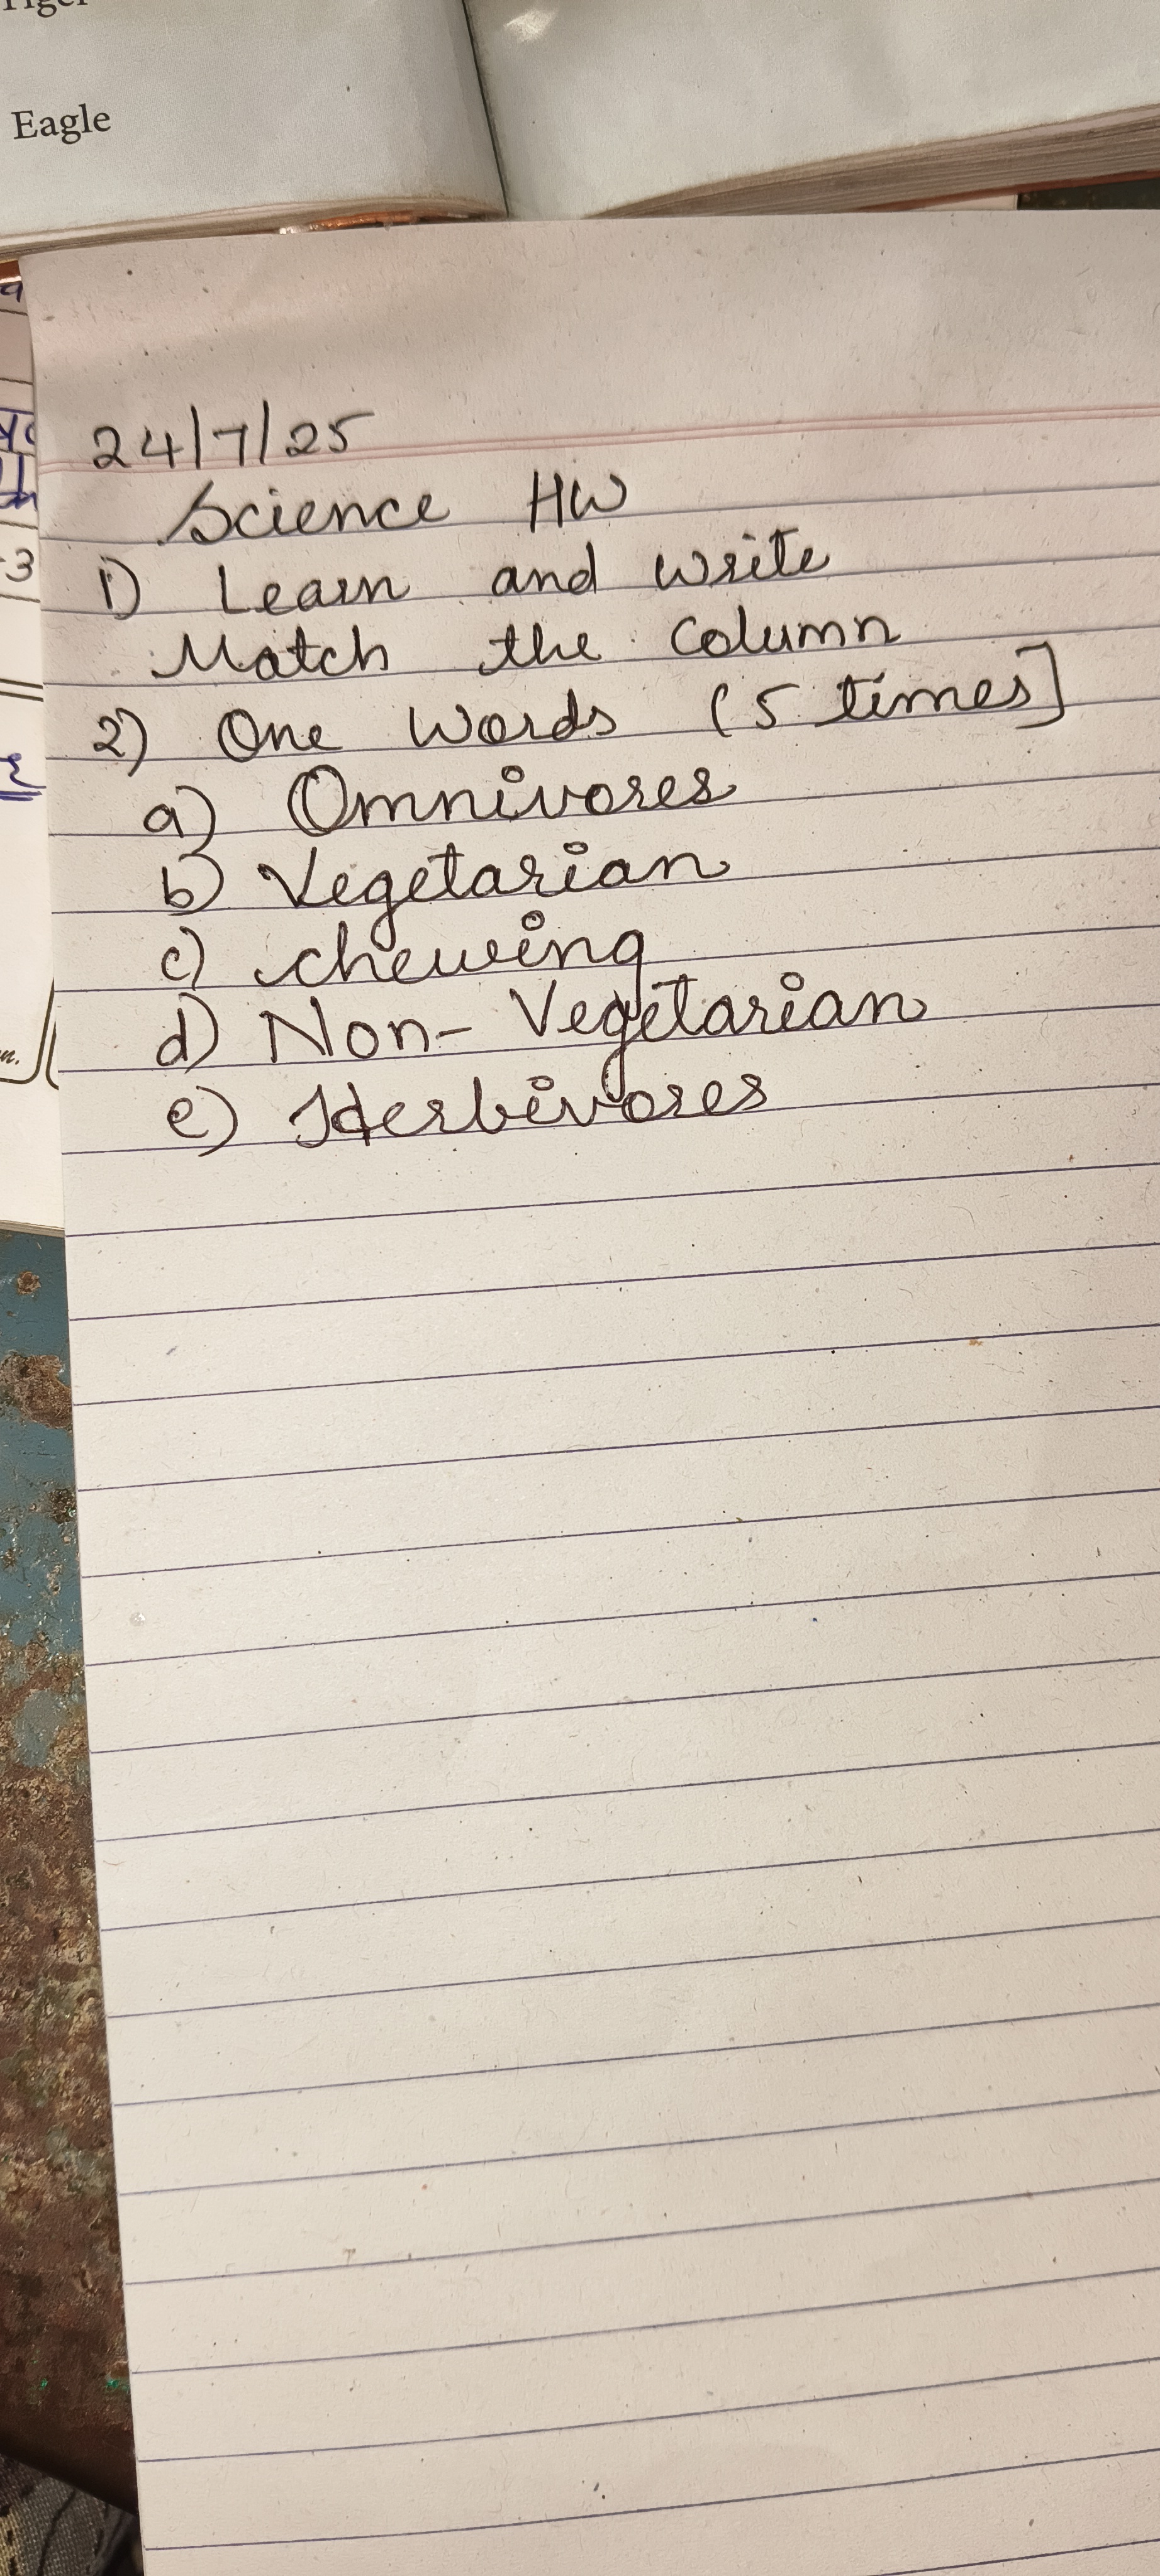 Eagle
24/7/25
Science HW
1) Learn and write
Match the column
2) One Words (5 times]
a) Omnivores
b) Vegetarian
c) chewing
d) Non-Vegetarian
e) Herbivores